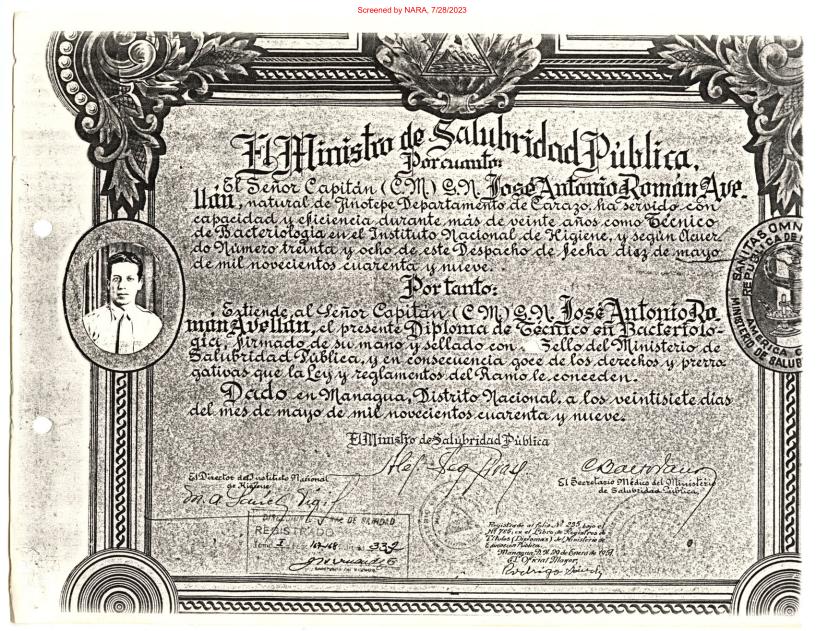 Screened by NARA, 7/28/2023
El Ministro de Salubridad Pública,
Por cuanto:
El Señor Capitán (C.M) G.N. José Antonio Román Ave-
llán, natural de Jinotepe Departamento de Carazo, ha servido con
capacidad y eficiencia durante más de veinte años como Técnico
de Bacteriología en el Instituto Nacional de Higiene, y según Acuer-
do Número treinta y ocho de este Despacho de fecha diez de mayo
de mil novecientos cuarenta y nueve.
Por tanto:
Extiende al Señor Capitán (C.M) G.N. José Antonio Ro-
mán Avellán, el presente Diploma de Técnico en Bacteriolo-
gía, firmado de su mano y sellado con Sello del Ministerio de
Salubridad Pública, y en consecuencia goce de los derechos y prerro-
gativas que la Ley y reglamentos del Ramo le conceden.
Dado en Managua, Distrito Nacional, a los veintisiete días
del mes de mayo de mil novecientos cuarenta y nueve.
El Ministro de Salubridad Pública
El Director del Instituto Nacional
de Higiene
El Secretario Médico del Ministerio
de Salubridad Pública,
DE SANIDAD
REGISTRADO
332
Registrado al folio Nº 235, bajo el
Nº 706, en el Libro de Registros de
Títulos (Diplomas) del Ministerio de
Educación Pública.
Managua, D.N. 20 de Enero de
El Oficial Mayor
Rodrigo
SANITAS OMN
REPUBLICA DE
AMERICA C
MINISTERIO DE SALUB